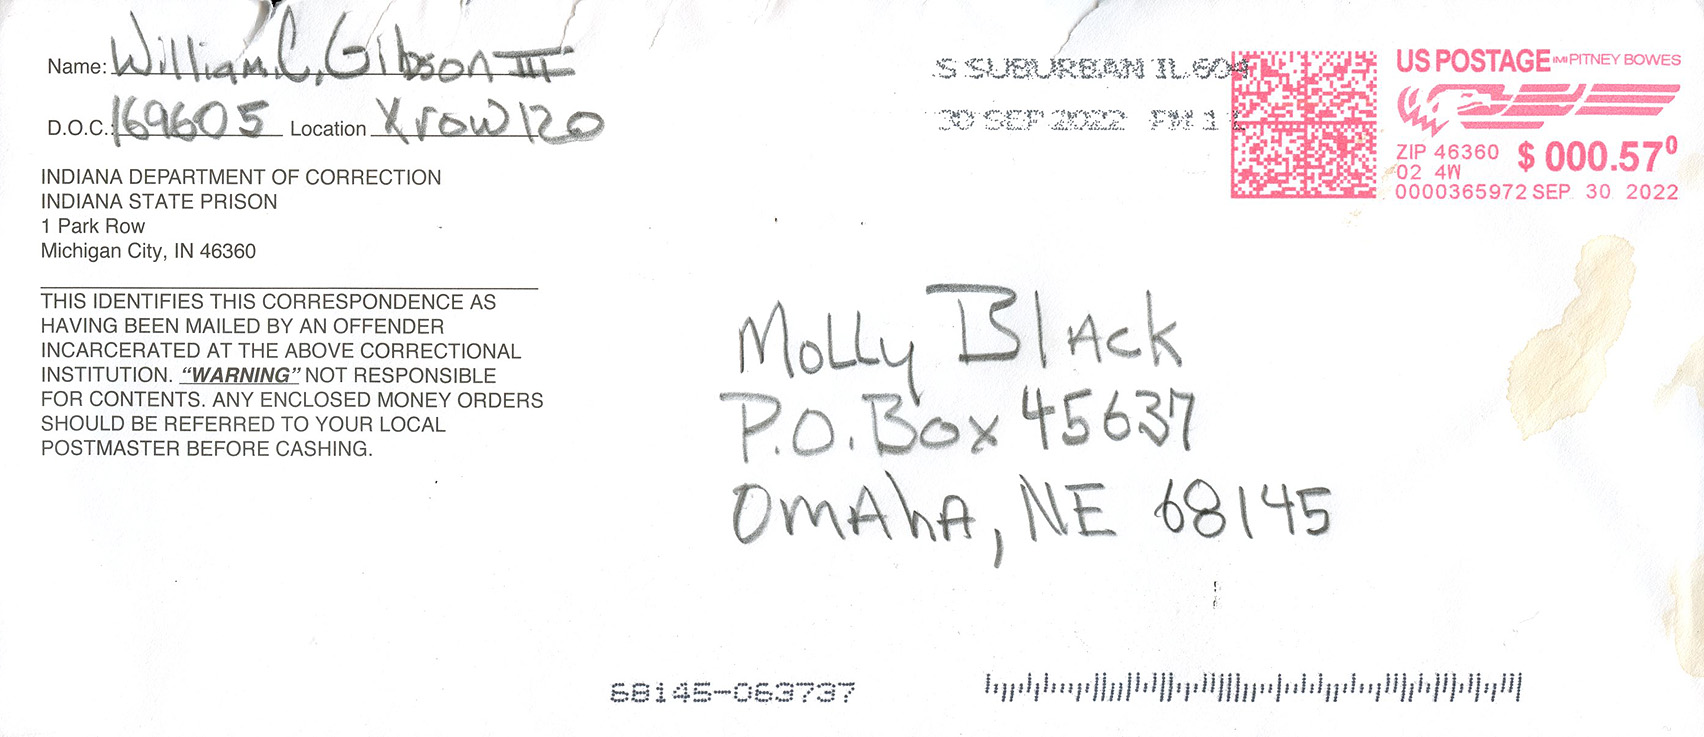 Name: William C, Gibson III
D.O.C.: 169605 Location X row 120
INDIANA DEPARTMENT OF CORRECTION
INDIANA STATE PRISON
1 Park Row
Michigan City, IN 46360
THIS IDENTIFIES THIS CORRESPONDENCE AS
HAVING BEEN MAILED BY AN OFFENDER
INCARCERATED AT THE ABOVE CORRECTIONAL
INSTITUTION. "WARNING" NOT RESPONSIBLE
FOR CONTENTS. ANY ENCLOSED MONEY ORDERS
SHOULD BE REFERRED TO YOUR LOCAL
POSTMASTER BEFORE CASHING.
S SUBURBAN IL 604
30 SEP 2022 PM 1 L
US POSTAGE IMI PITNEY BOWES
ZIP 46360 $ 000.57⁰
02 4W
0000365972 SEP 30 2022
Molly Black
P.O. Box 45637
Omaha, NE 68145
68145-063737